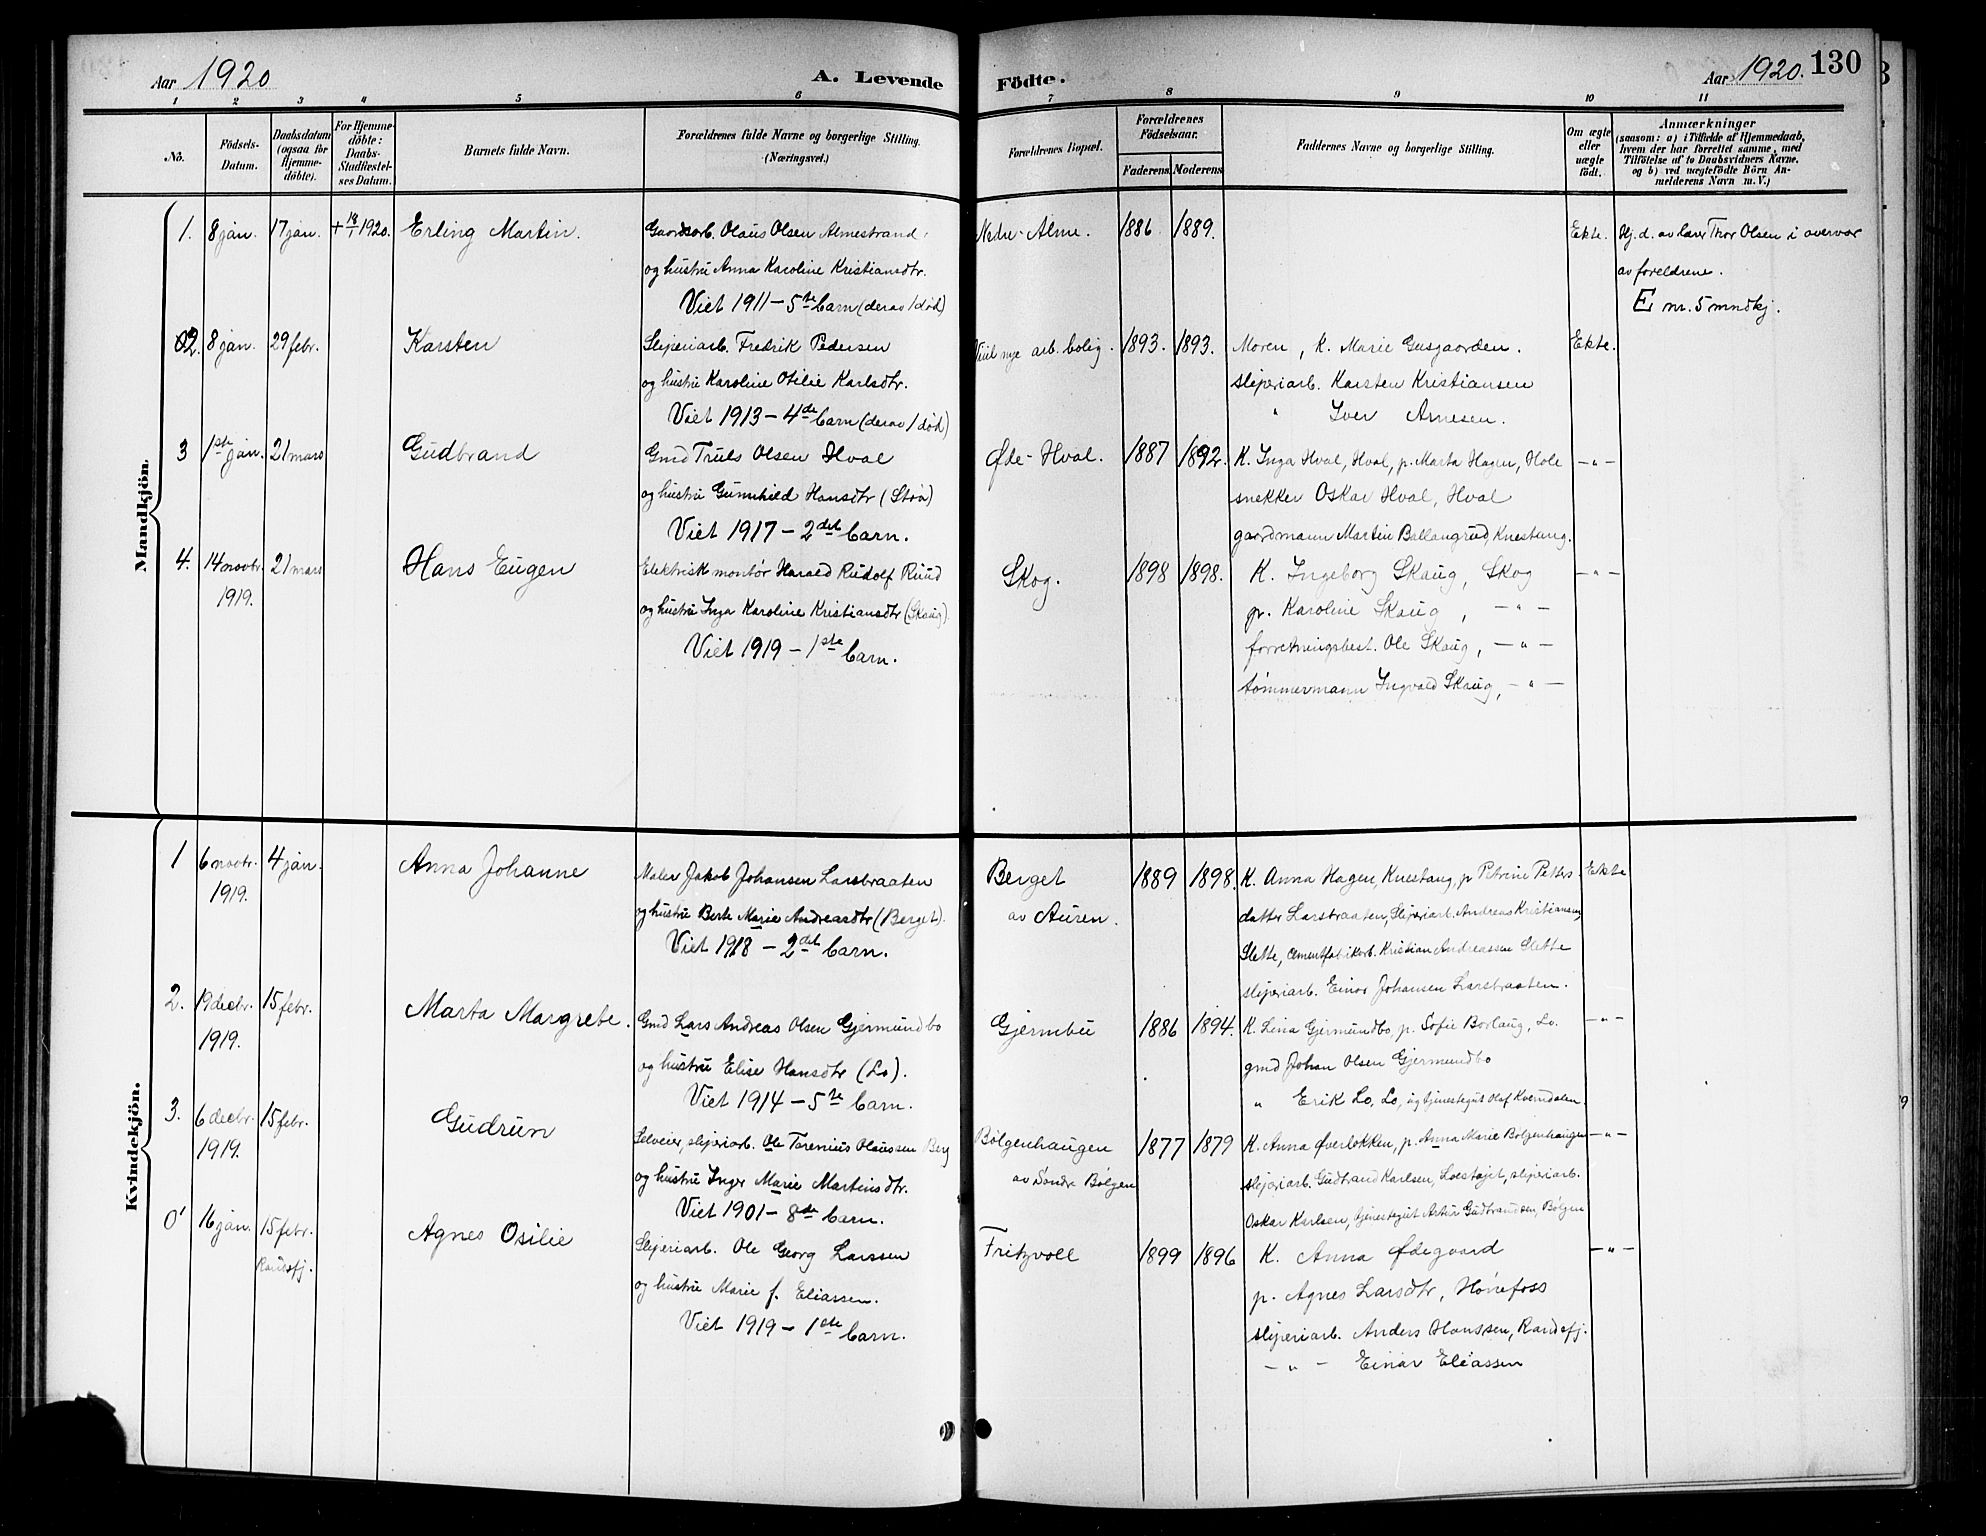 Aar 1920
A. Levende
Födte.
Aar 1920. 130
1 2 3 4 5 6 7 8 9 10 11
No.
Födsels-
Datum.
Daabsdatum
(ogsaa för
Hjemme-
döbte).
For Hjemme-
döbte:
Daabs-
Stadfæstel-
ses Datum.
Barnets fulde Navn.
Forældrenes fulde Navne og borgerlige Stilling.
(Næringsvei.)
Forældrenes Bopæl.
Forældrenes
Födselsaar.
Faderens. Moderens.
Faddernes Navne og borgerlige Stilling.
Om ægte
eller
uægte
født.
Anmærkninger
(saasom: a) i Tilfælde af Hjemmedaab,
hvem der har forrettet samme, med
Tilföielse af to Daabsvidners Navne.
og b) ved uægtefödte Börn An-
melderens Navn m. V.)
Mandkjön.
1. 8 jan. 17 jan. + 18/1 1920. Erling Martin. Gaardsarb. Olaus Olsen Almestrand
og hustru Anna Karoline Kristiansdtr.
Viet 1911 – 5te barn (derav 1 død)
Nedre-Alme. 1886 1889. Ekte. Hj.d. av lærer Thor Olsen i overvær
av foreldrene.
E nr. 5 mndkj.
2. 8 jan. 29 febr. Karsten Sliperiarb. Fredrik Pedersen
og hustru Karoline Otilie Karlsdtr.
Viet 1913 – 4de barn (derav 1 død)
nye arb. bolig. 1893. 1893. Moren, K. Marie Gusgaarden. Ekte.
sliperiarb. Karsten Kristiansen
" Iver Arnesen.
3 1ste jan. 21 mars Gudbrand Gmd Truls Olsen Hval
og hustru Gunnhild Hansdtr (Stra)
Viet 1917 – 2det barn.
Øde-Hval. 1887 1892. K. Inga Hval, Hval, p. Marta Hagen, Hole – " –
snekker Oskar Hval, Hval
gaardmann Martin Ballangrud, Knestang.
4. 14 novbr. 21 mars Hans Eugen Elektrisk montør Harald Rudolf Ruud
1919. og hustru Inga Karoline Kristiansdtr (Skaug).
Viet 1919 – 1ste barn.
Skog. 1898 1898. K. Ingeborg Skaug, Skog – " –
p. Karoline Skaug, – " –
forretningsbest. Ole Skaug, – " –
tømmermann Ingvald Skaug, – " –
Kvindekjön.
1 6 novbr. 4 jan. Anna Johanne Maler Jakob Johansen Larsbraaten
1919. og hustru Berte Marie Andreasdtr (Berget).
Viet 1918 – 2det barn.
Berget 1889 1898. K. Anna Hagen, Knestang, p Petrine Petters Ekte
av Auren. datter Larsbraaten, Sliperiarb. Andreas Kristiansen
Slette, cementfabikarb. Kristian Andreassen Slette
sliperiarb. Einar Johansen Larsbraaten.
2. 19 decbr. 15 febr. Marta Margrete. Gmd Lars Andreas Olsen Gjermundbo
1919. og hustru Elise Hansdtr (Lo).
Viet 1914 – 5te barn.
Gjermbu 1886 1894. K. Lina Gjermundbo, p. Sofie Borlaug, Lo. – " –
gmd Johan Olsen Gjermundbo
" Erik Lo, Lo, ug tjenestegut Olaf Kverndalen.
3. 6 decbr. 15 febr. Gudrun Selveier, sliperiarb. Ole Torenius Olaussen Berg
1919. og hustru Inger Marie Martinsdtr.
Viet 1901 – 8de barn.
Bølgenhaugen 1877 1879 K. Anna Øverløkken, p. Anna Marie Bølgenhaugen – " –
av Søndre Bølgen sliperiarb. Gudbrand Karlsen, sliperiarb.
Oskar Karlsen, tjenestegut Artur Gudbrandsen, Bølgen
0' 16 jan. 15 febr. Agnes Osilie Sliperiarb. Ole Georg Larssen
Randsfj. og hustru Marie f. Eliassen.
Viet 1919 – 1ste barn.
Fritzvoll 1899 1896 K. Anna Ødegaard – " –
p. Agnes Larsdtr, Hønefoss
sliperiarb. Anders Hanssen, Randsfj.
– " – Einar Eliassen